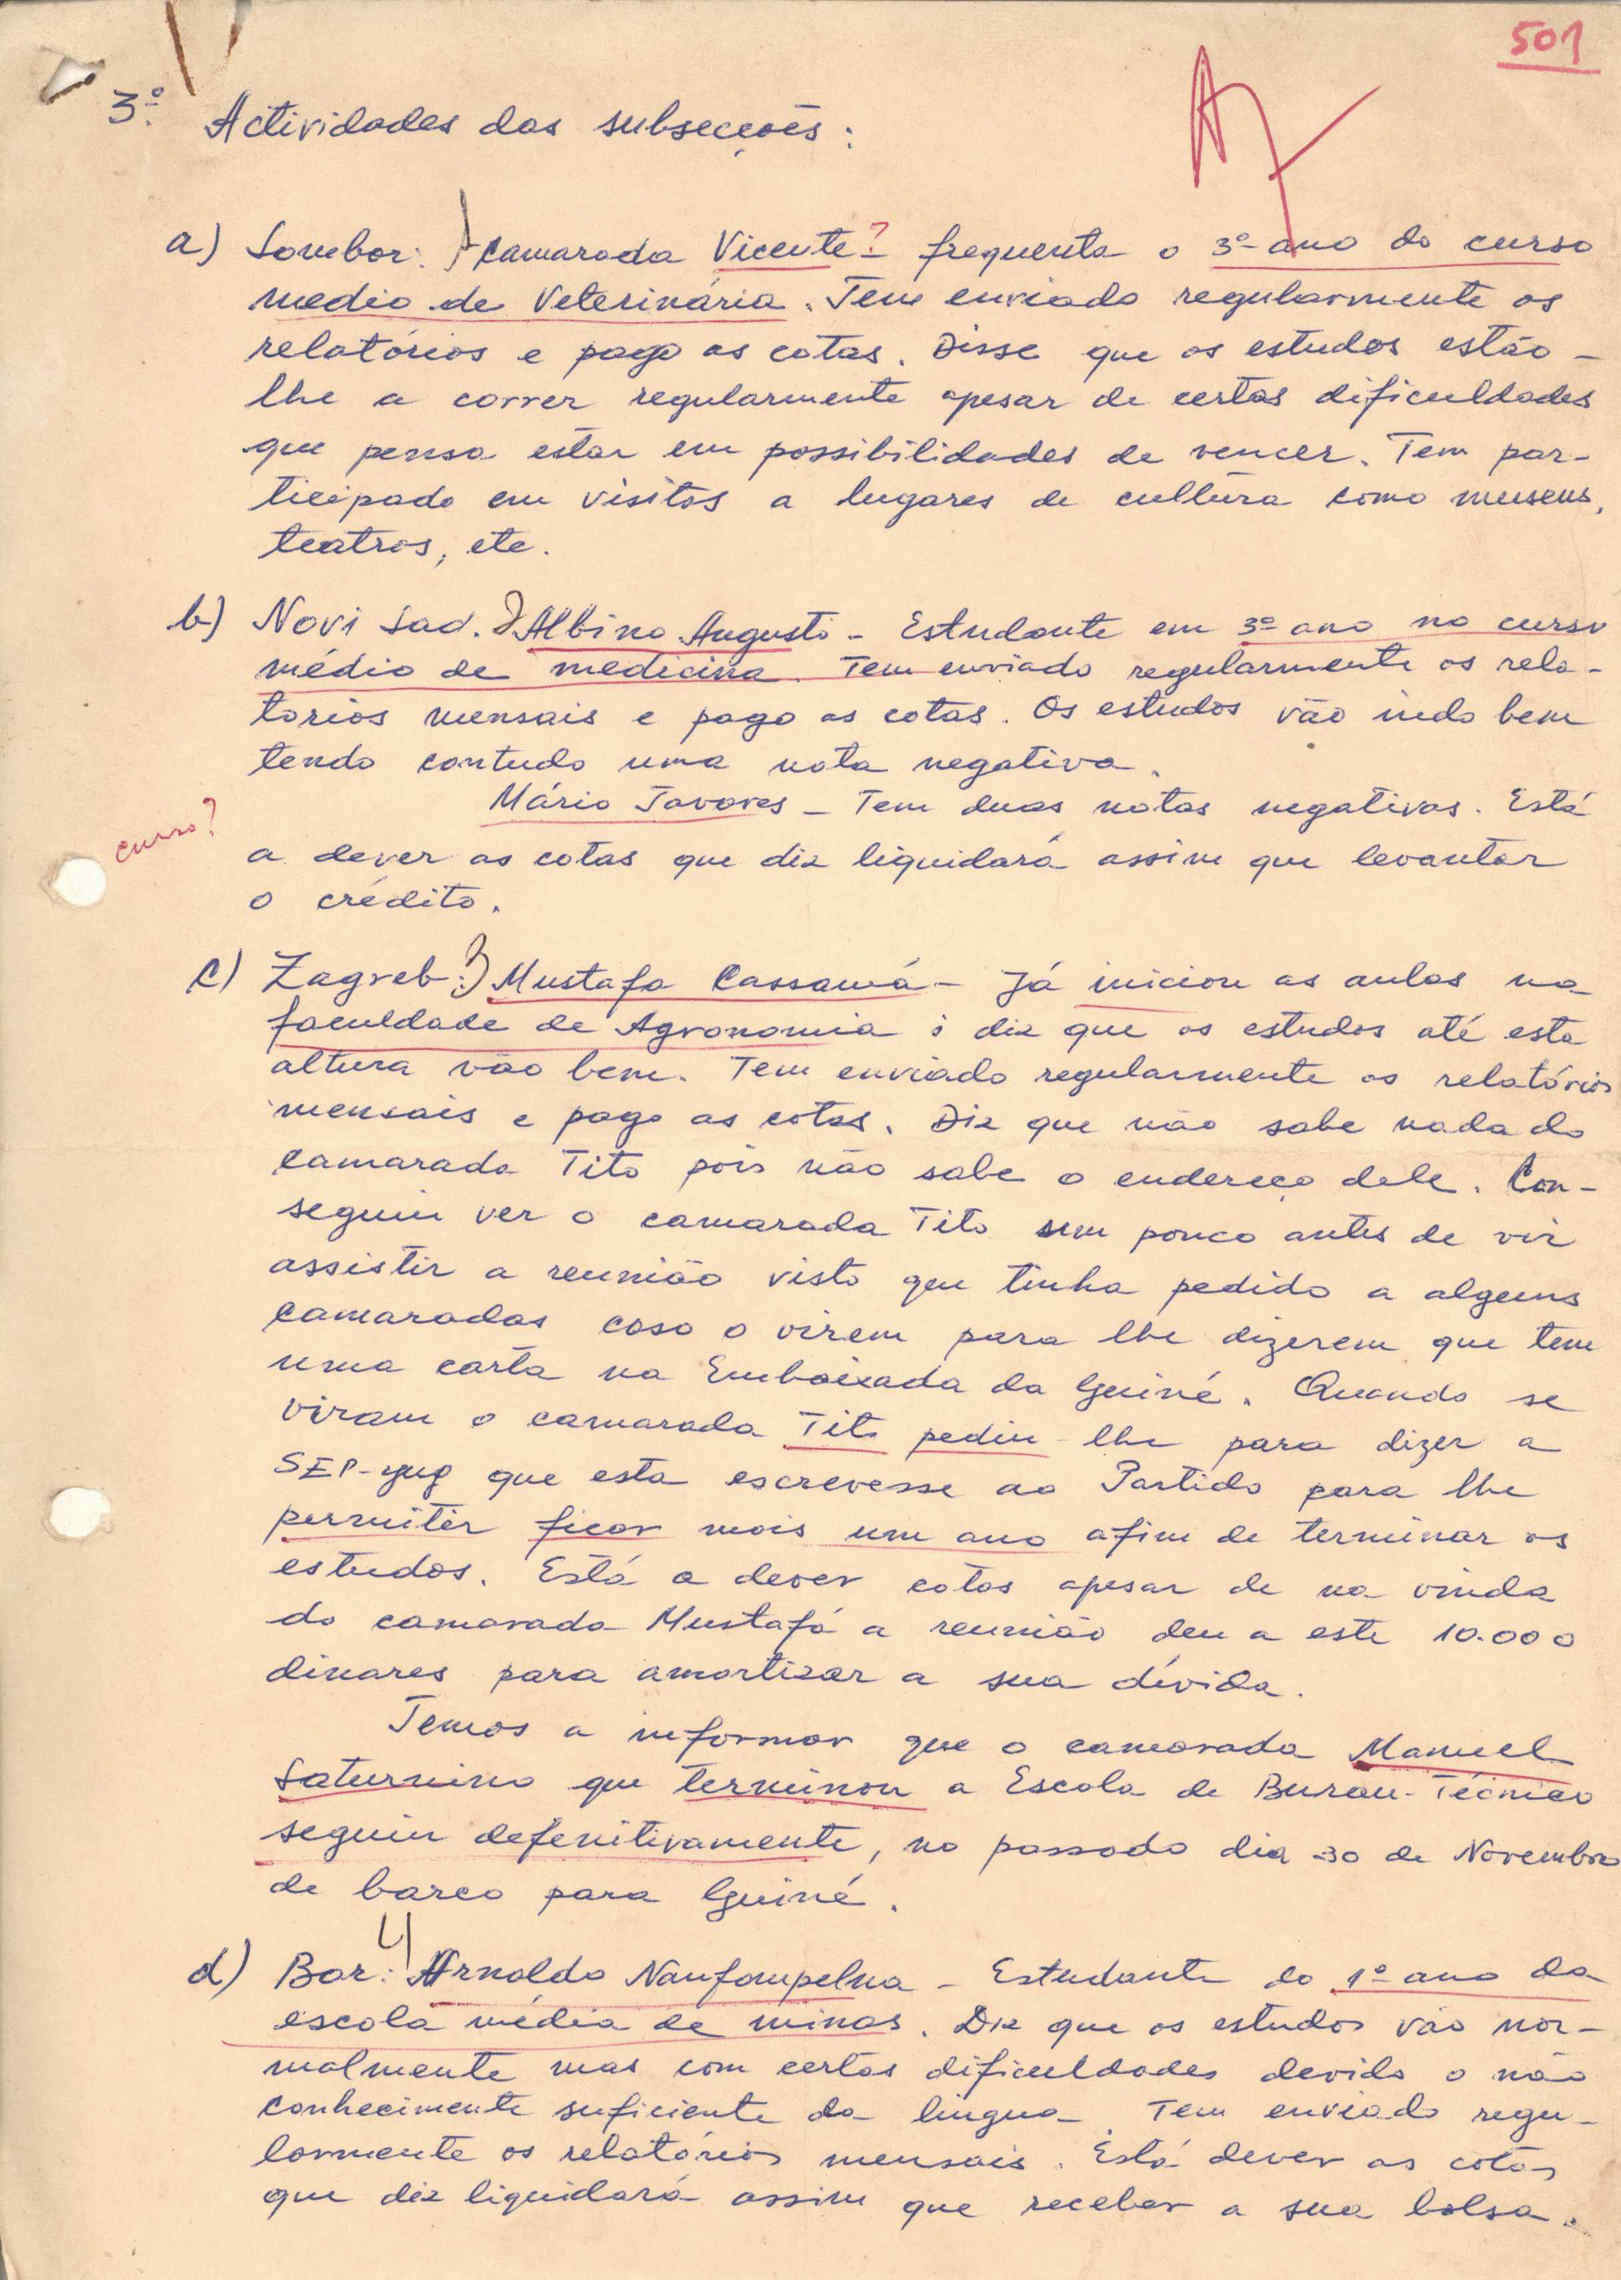 501
3º. Actividades das subsecções:
a) Sombor: Camarada Vicente? - frequenta o 3º ano do curso
medio de Veterinária. Tem enviado regularmente os
relatórios e pago as cotas. Disse que os estudos estão-
lhe a correr regularmente apesar de certas dificuldades
que pensa estar em possibilidades de vencer. Tem par-
ticipado em visitas a lugares de cultura como museus,
teatros, etc.
b) Novi Sad. Albino Augusto - Estudante em 3º ano no curso
médio de medicina. Tem enviado regularmente os rela-
torios mensais e pago as cotas. Os estudos vão indo bem
tendo contudo uma nota negativa.
Mário Tavares - Tem duas notas negativas. Está
curso?
a dever as cotas que diz liquidará assim que levantar
o crédito.
c) Zagreb: Mustafa Cassamá - Já iniciou as aulas na
faculdade de Agronomia; diz que os estudos até esta
altura vão bem. Tem enviado regularmente os relatórios
mensais e pago as cotas. Diz que não sabe nada do
camarada Tito pois não sabe o endereço dele. Con-
seguiu ver o camarada Tito um pouco antes de vir
assistir a reunião visto que tinha pedido a alguns
camaradas caso o virem para lhe dizerem que tem
uma carta na Embaixada da Guiné. Quando se
viram o camarada Tito pediu-lhe para dizer a
SEP-yug que esta escrevesse ao Partido para lhe
permitir ficar mais um ano afim de terminar os
estudos. Está a dever cotas apesar de na vinda
do camarada Mustafá a reunião deu a este 10.000
dinares para amortizar a sua dívida.
Temos a informar que o camarada Manuel
Saturnino que terminou a Escola de Bureau-Técnico
seguiu defenitivamente, no passado dia 30 de Novembro
de barco para Guiné.
d) Bor: 4) Arnaldo Nanfompelna - Estudante do 1º ano da
escola média de minas. Diz que os estudos vão nor-
malmente mas com certas dificuldades devido o não
conhecimente suficiente da lingua. Tem enviado regu-
larmente os relatórios mensais. Está dever as cotas
que diz liquidará assim que receber a sua bolsa.